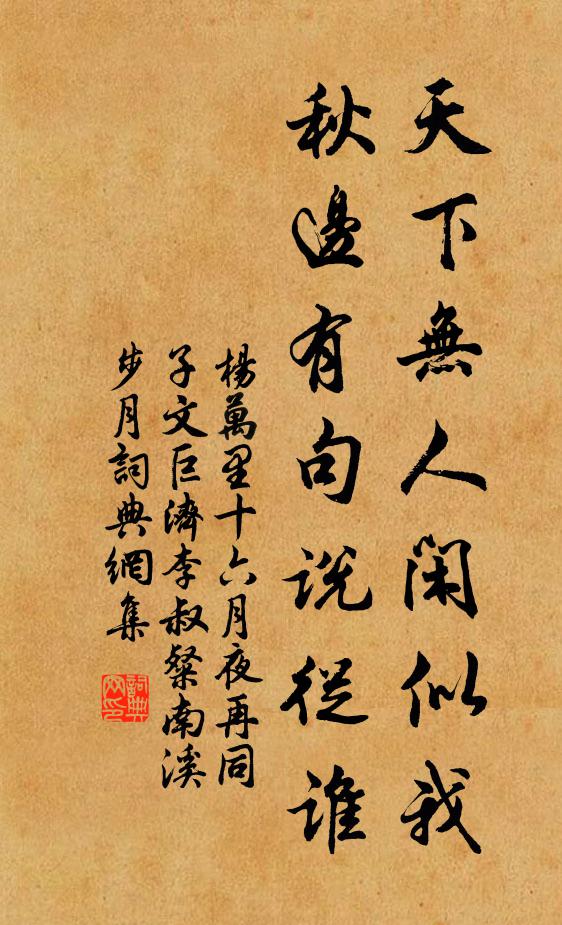 天下無人閑似我
秋邊有句説從誰
楊萬里十六月夜再同
子文巨濟李叔粲南溪
步月詞典網集
詞典網印